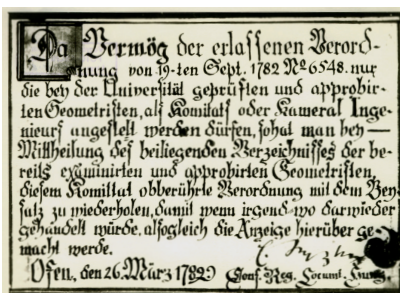 Da Vermög der erlassenen Verord-
nung von 19-ten Sept. 1782 No 6548. nur
die bey der Universität geprüften und approbir-
ten Geometristen, als Komitats oder Kameral Inge-
nieurs angestelt werden dürfen, sohat man bey —
Mittheilung des beiliegenden Verzeichnisses der be-
reits examinirten und approbirten Geometristen,
diesem Komittat obberührte Verordnung mit dem Bey-
satz zu wiederholen, damit wenn irgend-wo darwieder
gehandelt würde, alsogleich die Anzeige hierüber ge-
macht werde.
Ofen, den 26. März
Cons. Reg. Locumt. Hung.